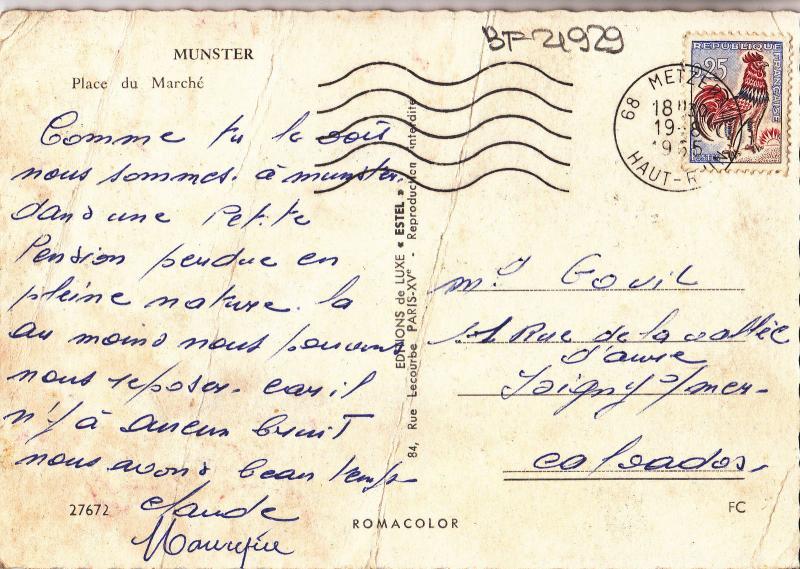 BF 21929
MUNSTER
Place du Marché
Comme tu le vois
nous sommes à munster
dans une Petite
Pension perdue en
pleine nature. la
au moins nous pouvons
nous reposer car il
n'y à aucun bruit
nous avons beau temps
Claude
27672
ROMACOLOR
FC
EDITIONS de LUXE « ESTEL »
84, Rue Lecourbe PARIS-XVe - Reproduction interdite
REPUBLIQUE FRANÇAISE
0,25
68 METZE
18H
19-8
1965
HAUT-RHIN
Rue de la vallée
d'aure
Isigny s/mer
calvados